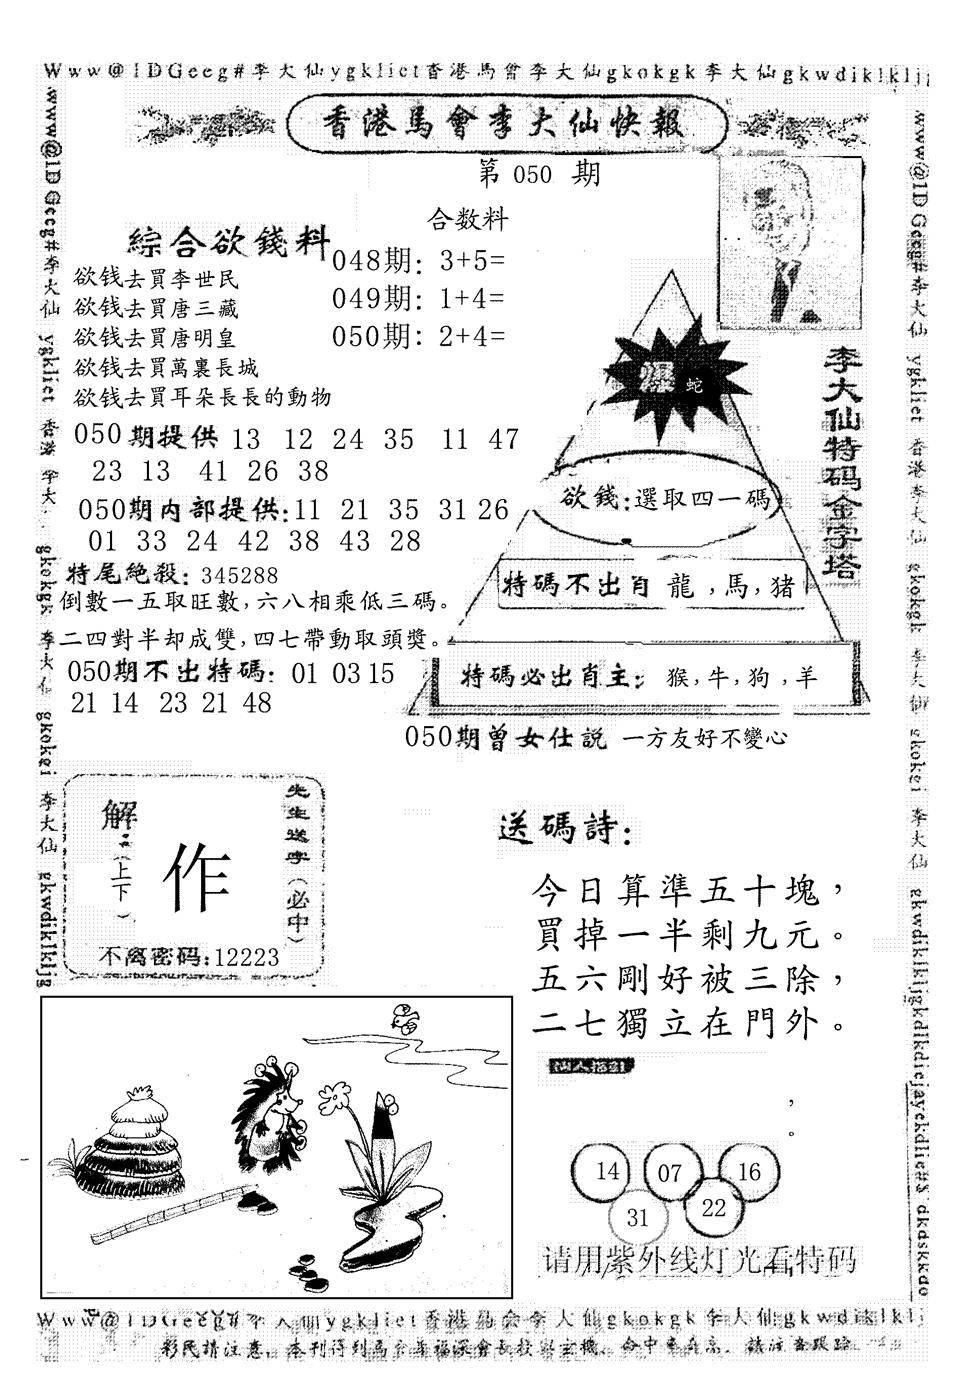 Www@1DGeeg#李大仙ygkliet香港馬會李大仙gkokgk李大仙gkwdiklkljg
香港馬會李大仙快報
第 050 期
合数料
綜合欲錢料
048期: 3+5=
049期: 1+4=
050期: 2+4=
欲钱去買李世民
欲钱去買唐三藏
欲钱去買唐明皇
欲钱去買萬裏長城
欲钱去買耳朵長長的動物
050期提供 13 12 24 35 11 47
23 13 41 26 38
050期内部提供:11 21 35 31 26
01 33 24 42 38 43 28
特尾絶殺: 345288
倒數一五取旺數,六八相乘低三碼。
二四對半却成雙,四七帶動取頭獎。
050期不出特碼: 01 03 15
21 14 23 21 48
爆 蛇
欲錢:選取四一碼
特碼不出肖 龍,馬,猪
特碼必出肖主: 猴,牛,狗,羊
李大仙特码金字塔
050期曾女仕説 一方友好不變心
解:(上下)
作
先生送字(必中)
不离密码:12223
送碼詩:
今日算準五十塊,
買掉一半剩九元。
五六剛好被三除,
二七獨立在門外。
,
。
14 07 16
31 22
请用紫外线灯光看特码
www@1DGeeg#李大仙 ygkliet 香港 李大 gkokgk 李大仙 gkokei 李大仙 gkwdiklkljg
www@1DGeeg#李大仙 ygkliet 香港李大仙 gkokgk 李大仙 gkokei 李大仙
Www@1DGeeg#李大仙ygkliet香港馬会李大仙gkokgk李大仙gkwdiklklj
彩民請注意,本刊得到馬会